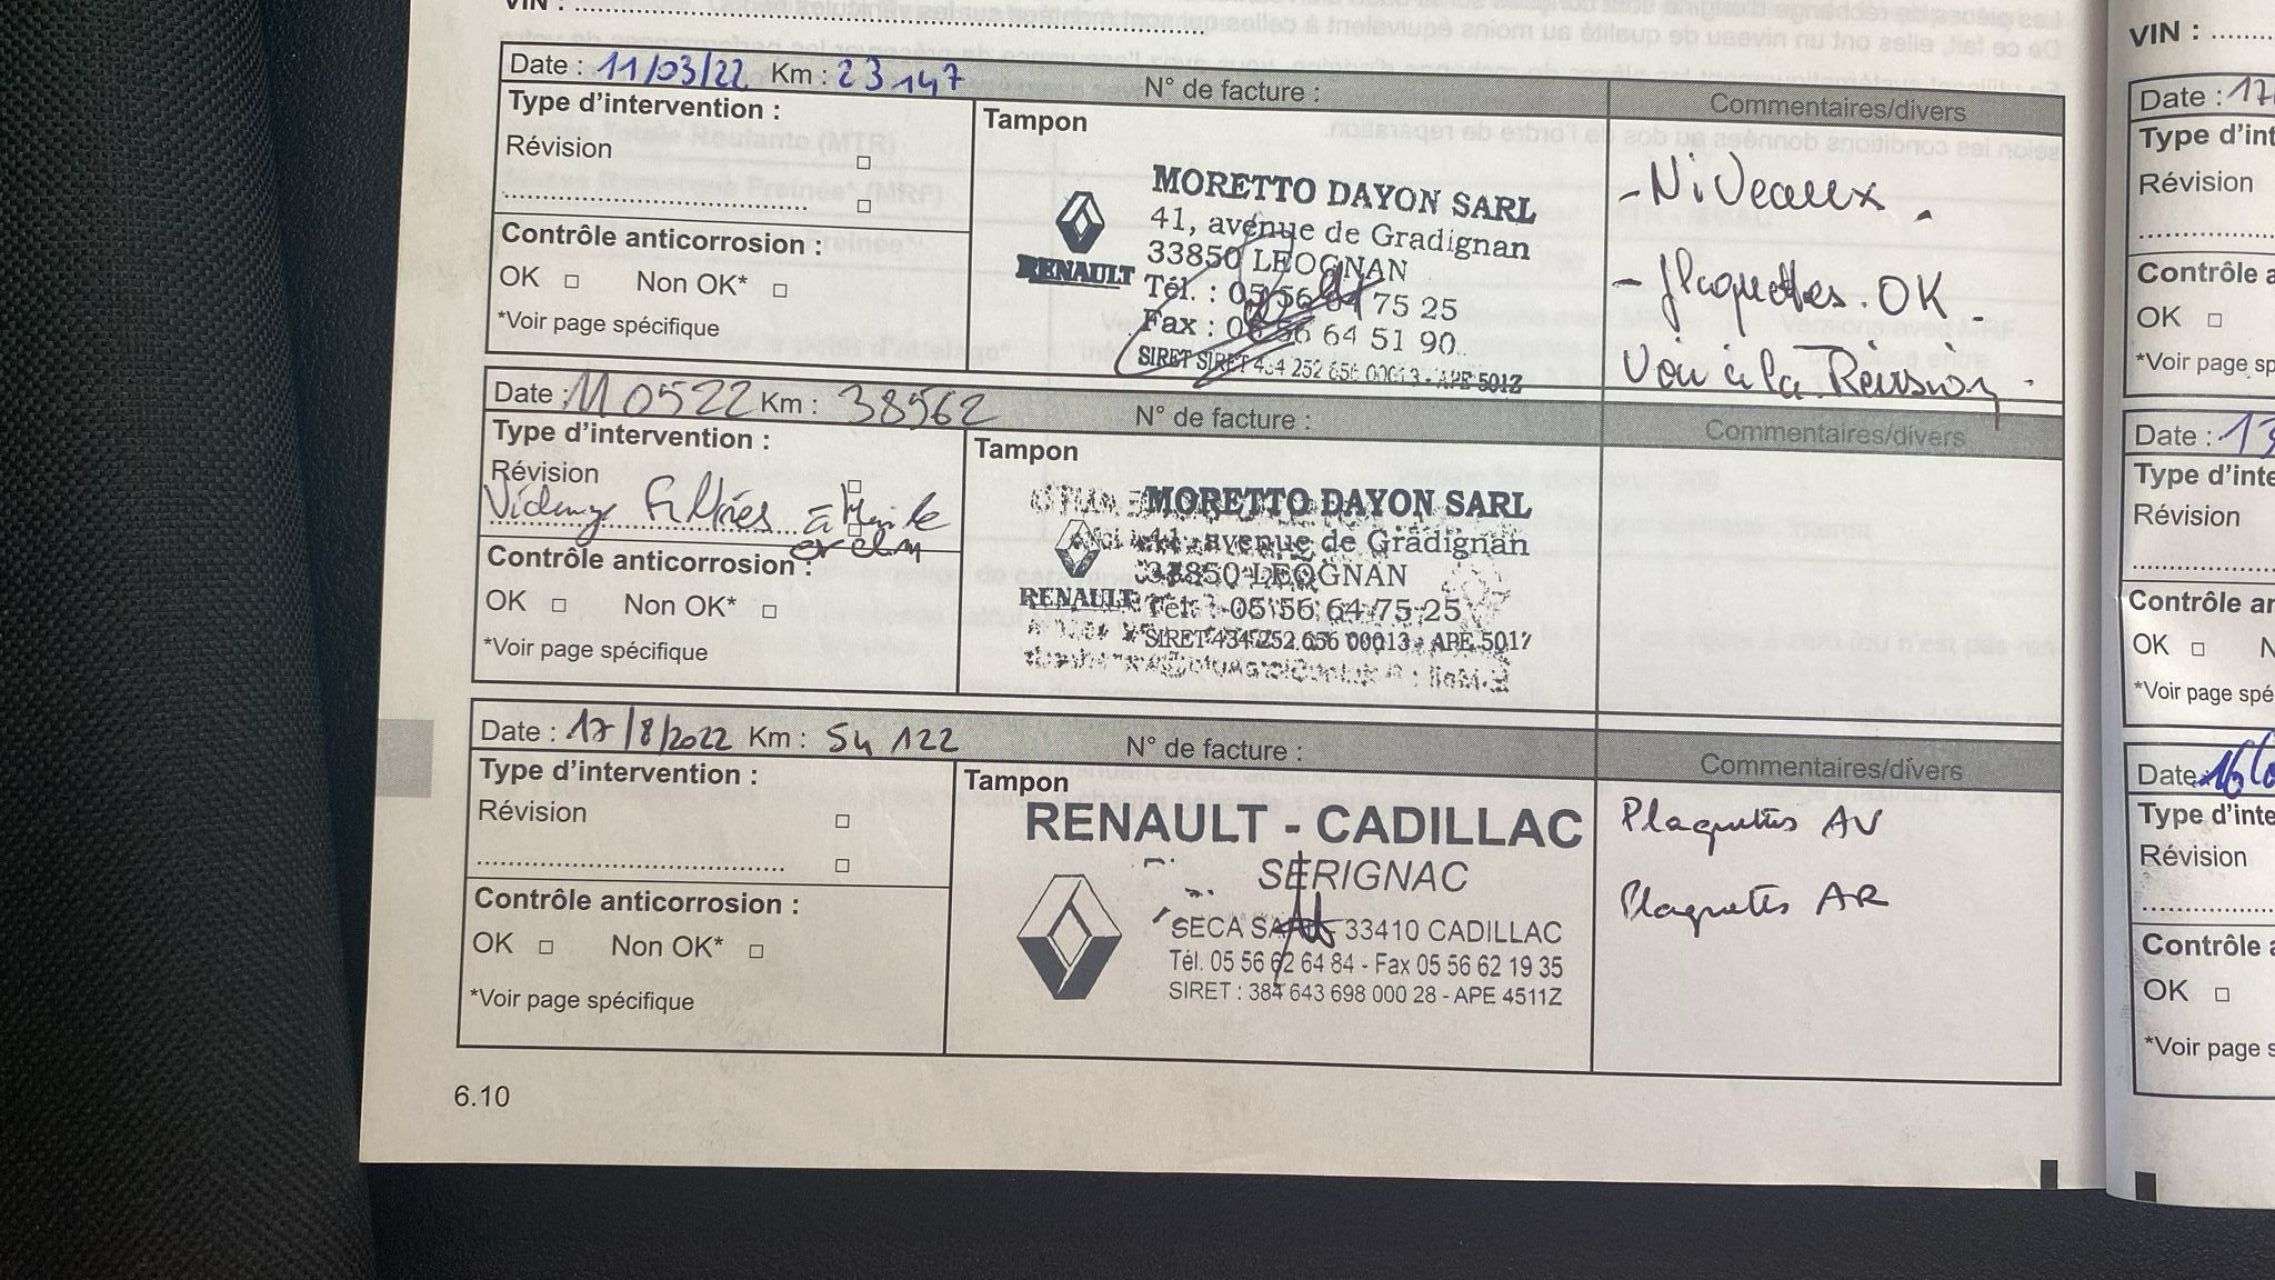 VIN :
Date : 11/03/22 Km : 23 147 N° de facture : Commentaires/divers
Type d'intervention :
Révision
Contrôle anticorrosion :
OK Non OK*
*Voir page spécifique
Tampon
MORETTO DAYON SARL
41, avenue de Gradignan
33850 LEOGNAN
RENAULT
Tél. : 05 56 64 75 25
Fax : 05 56 64 51 90
SIRET SIRET 434 252 656 00013 - APE 501Z
- Niveaux.
- Plaquettes. OK.
Voir à la Révision.
Date : 110522 Km : 38562 N° de facture : Commentaires/divers
Type d'intervention :
Révision
Vidange Filtres à Huile
Contrôle anticorrosion :
OK Non OK*
*Voir page spécifique
Tampon
MORETTO DAYON SARL
41, avenue de Gradignan
33850 LEOGNAN
RENAULT
Tél. : 05 56 64 75 25
SIRET 434 252 656 00013 - APE 501Z
Date : 17/8/2022 Km : 54 122 N° de facture : Commentaires/divers
Type d'intervention :
Révision
Contrôle anticorrosion :
OK Non OK*
*Voir page spécifique
Tampon
RENAULT - CADILLAC
SERIGNAC
SECA SARL 33410 CADILLAC
Tél. 05 56 62 64 84 - Fax 05 56 62 19 35
SIRET : 384 643 698 000 28 - APE 4511Z
Plaquettes AV
Plaquettes AR
6.10
VIN :
Date : 17
Type d'int
Révision
Contrôle a
OK
*Voir page sp
Date : 13
Type d'inte
Révision
Contrôle an
OK N
*Voir page spé
Date : 16/0
Type d'inte
Révision
Contrôle a
OK
*Voir page s